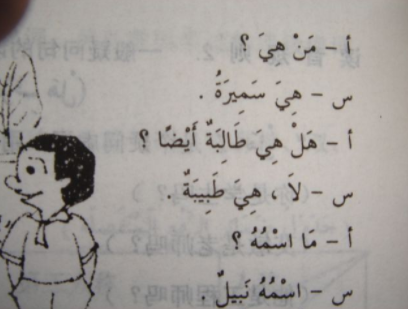 أ - مَنْ هِيَ ؟
س - هِيَ سَمِيرَةُ .
أ - هَلْ هِيَ طَالِبَةٌ أَيْضًا ؟
س - لَا ، هِيَ طَبِيبَةٌ .
أ - مَا اسْمُهُ ؟
س - اسْمُهُ نَبِيلٌ .